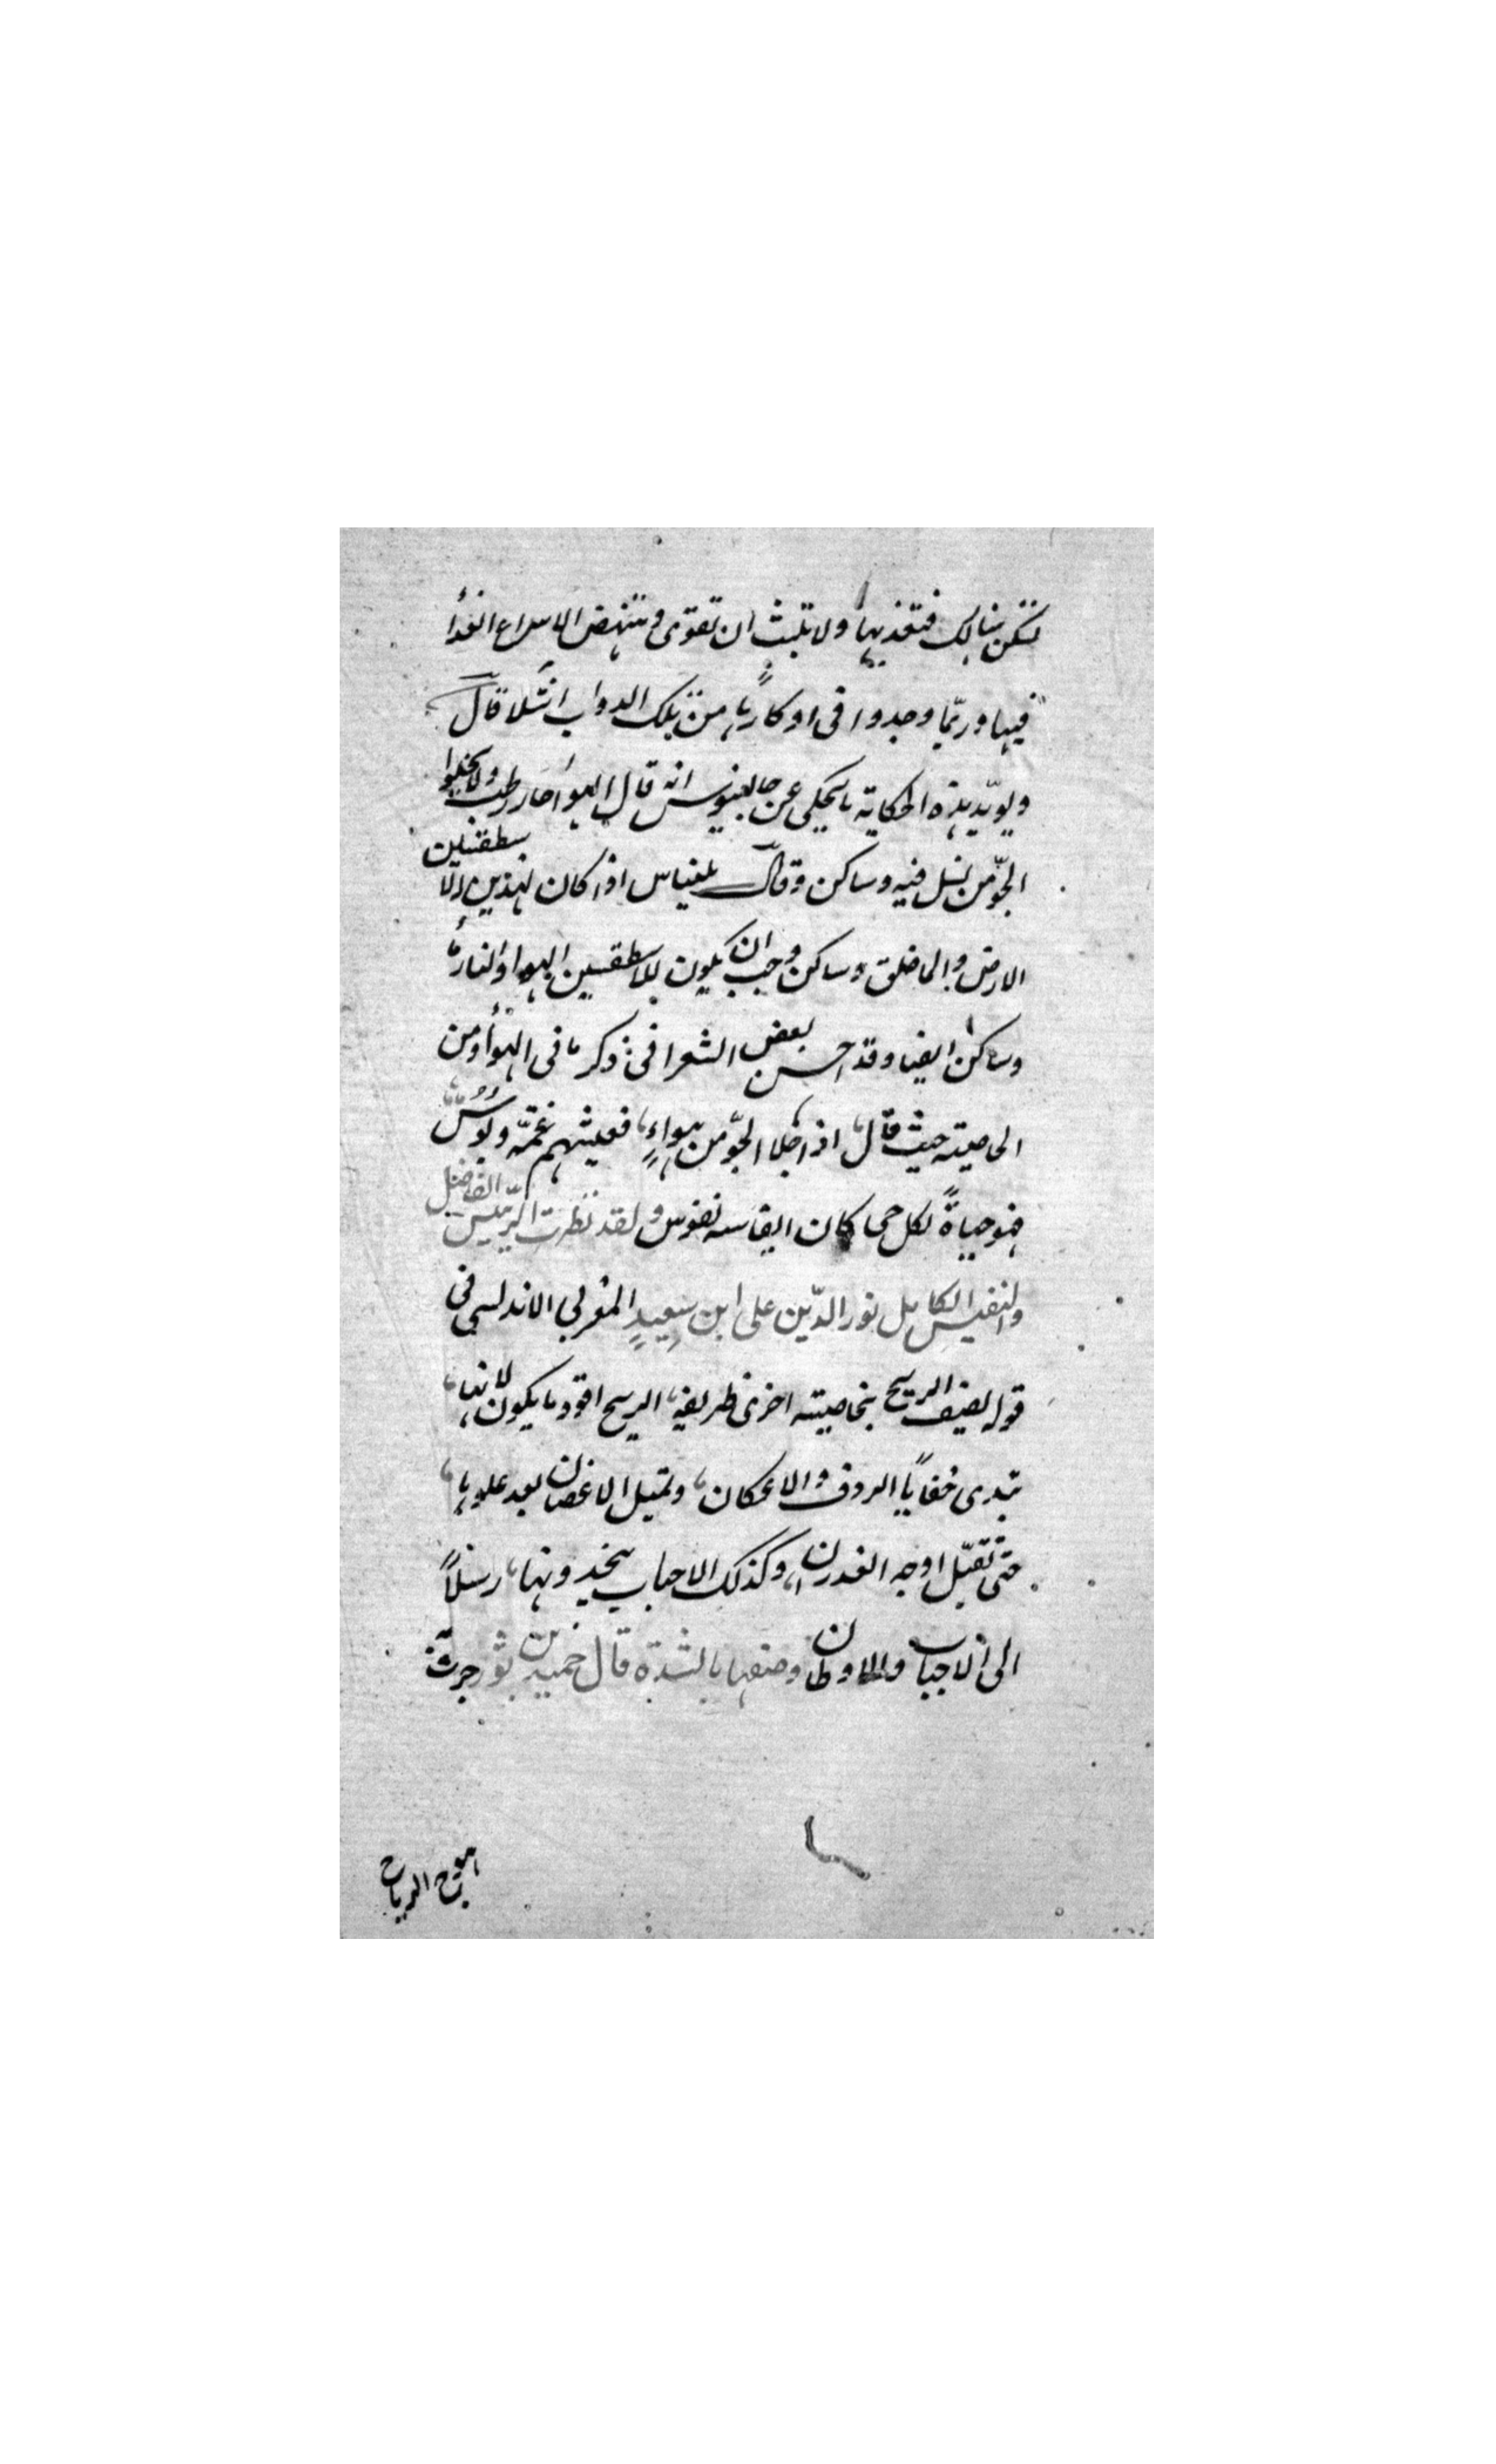 تسكن هنالك فتغذيها ولا تلبث ان تقوى وتنهض الا سراع الغدا
فيها وربّما وجدوا فى اوكارها من تلك الدواب اشلا قال
ويويّد هذه الحكاية ما يحكى عن جالينوس انه قال الهوا حار رطب ولا يخلوا
الجوّ من نسل فيه وساكن وقال بليناس اذا كان لهذين الاسطقسين
الارض والما خلق وساكن وجب ان يكون للاسطقسين الهوا والنار
وساكن ايضا وقد احسن بعض الشعرا فى ذكر ما فى الهوا ومن
الخاصيته حيث قال اذا خلا الجوّ من هواءٍ فعيشهم غمّه وبوس
فهو حياةً لكل حى كان انفاسه نفوس ولقد نظرت الريّس الفاضل
والنفيس الكامل نور الدّين على ابن سعيدٍ المغربى الاندلسى فى
قوله يصف الريح بخاصيته اخرى ظريفه الريح اقود ما يكون لانها
تبدى خفايا الردف والاعكان وتميل الاغصان بعد علوها
حتى تقبّل اوجه الغدران وكذلك الاحباب يتخدونها رسلاً
الى الاحباب والاوطان وصفها بالشدّة قال حميد بن ثور جرت
الرياح